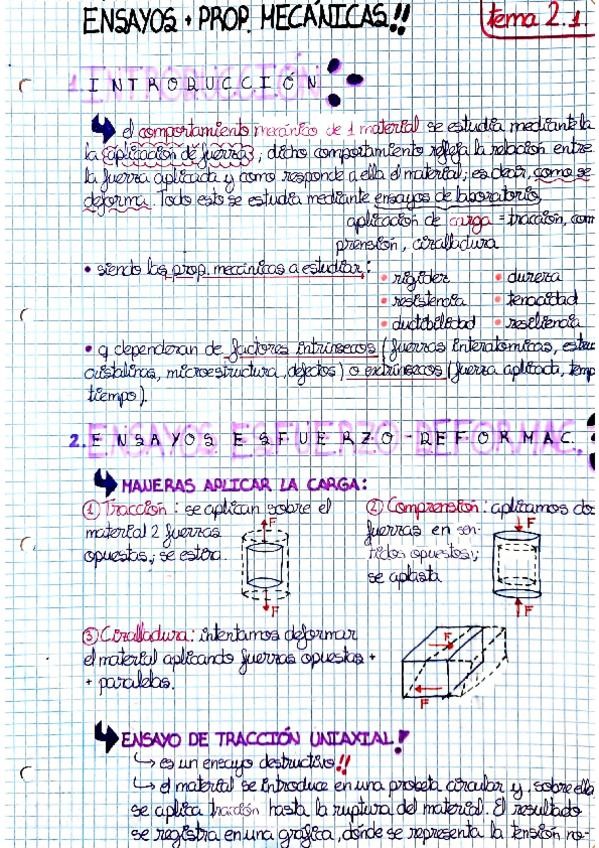 ENSAYOS + PROP. MECÁNICAS!!
tema 2.1
1. INTRODUCCIÓN
el comportamiento mecánico de 1 material se estudia mediante la
la aplicación de fuerzas, dicho comportamiento refleja la relación entre
la fuerza aplicada y como responde a ella el material; es decir, como se
deforma. Todo esto se estudia mediante ensayos de laboratorio,
aplicación de carga = tracción, com
prensión, cizalladura
• siendo las prop. mecánicas a estudiar:
• rigidez • dureza
• resistencia • tenacidad
• ductibilidad • resiliencia
• q dependeran de factores intrínsecos (fuerzas interatomicas, estru
cristalinas, microestructura, defectos) o extrínsecos (fuerza aplicada, temp
tiempo).
2. ENSAYOS ESFUERZO-DEFORMAC.
MANERAS APLICAR LA CARGA:
① Tracción: se aplican sobre el
material 2 fuerzas
opuestas, se estira.
F
F
② Comprensión: aplicamos dos
fuerzas en sen-
tidos opuestos,
se aplasta
F
F
③ Cizalladura: intentamos deformar
el material aplicando fuerzas opuestas +
+ paralelas.
F
F
ENSAYO DE TRACCIÓN UNIAXIAL!
↳ es un ensayo destructivo!!
↳ el material se introduce en una probeta circular y, sobre ella
se aplica tracción hasta la ruptura del material. El resultado
se registra en una grafica, donde se representa la tensión no-